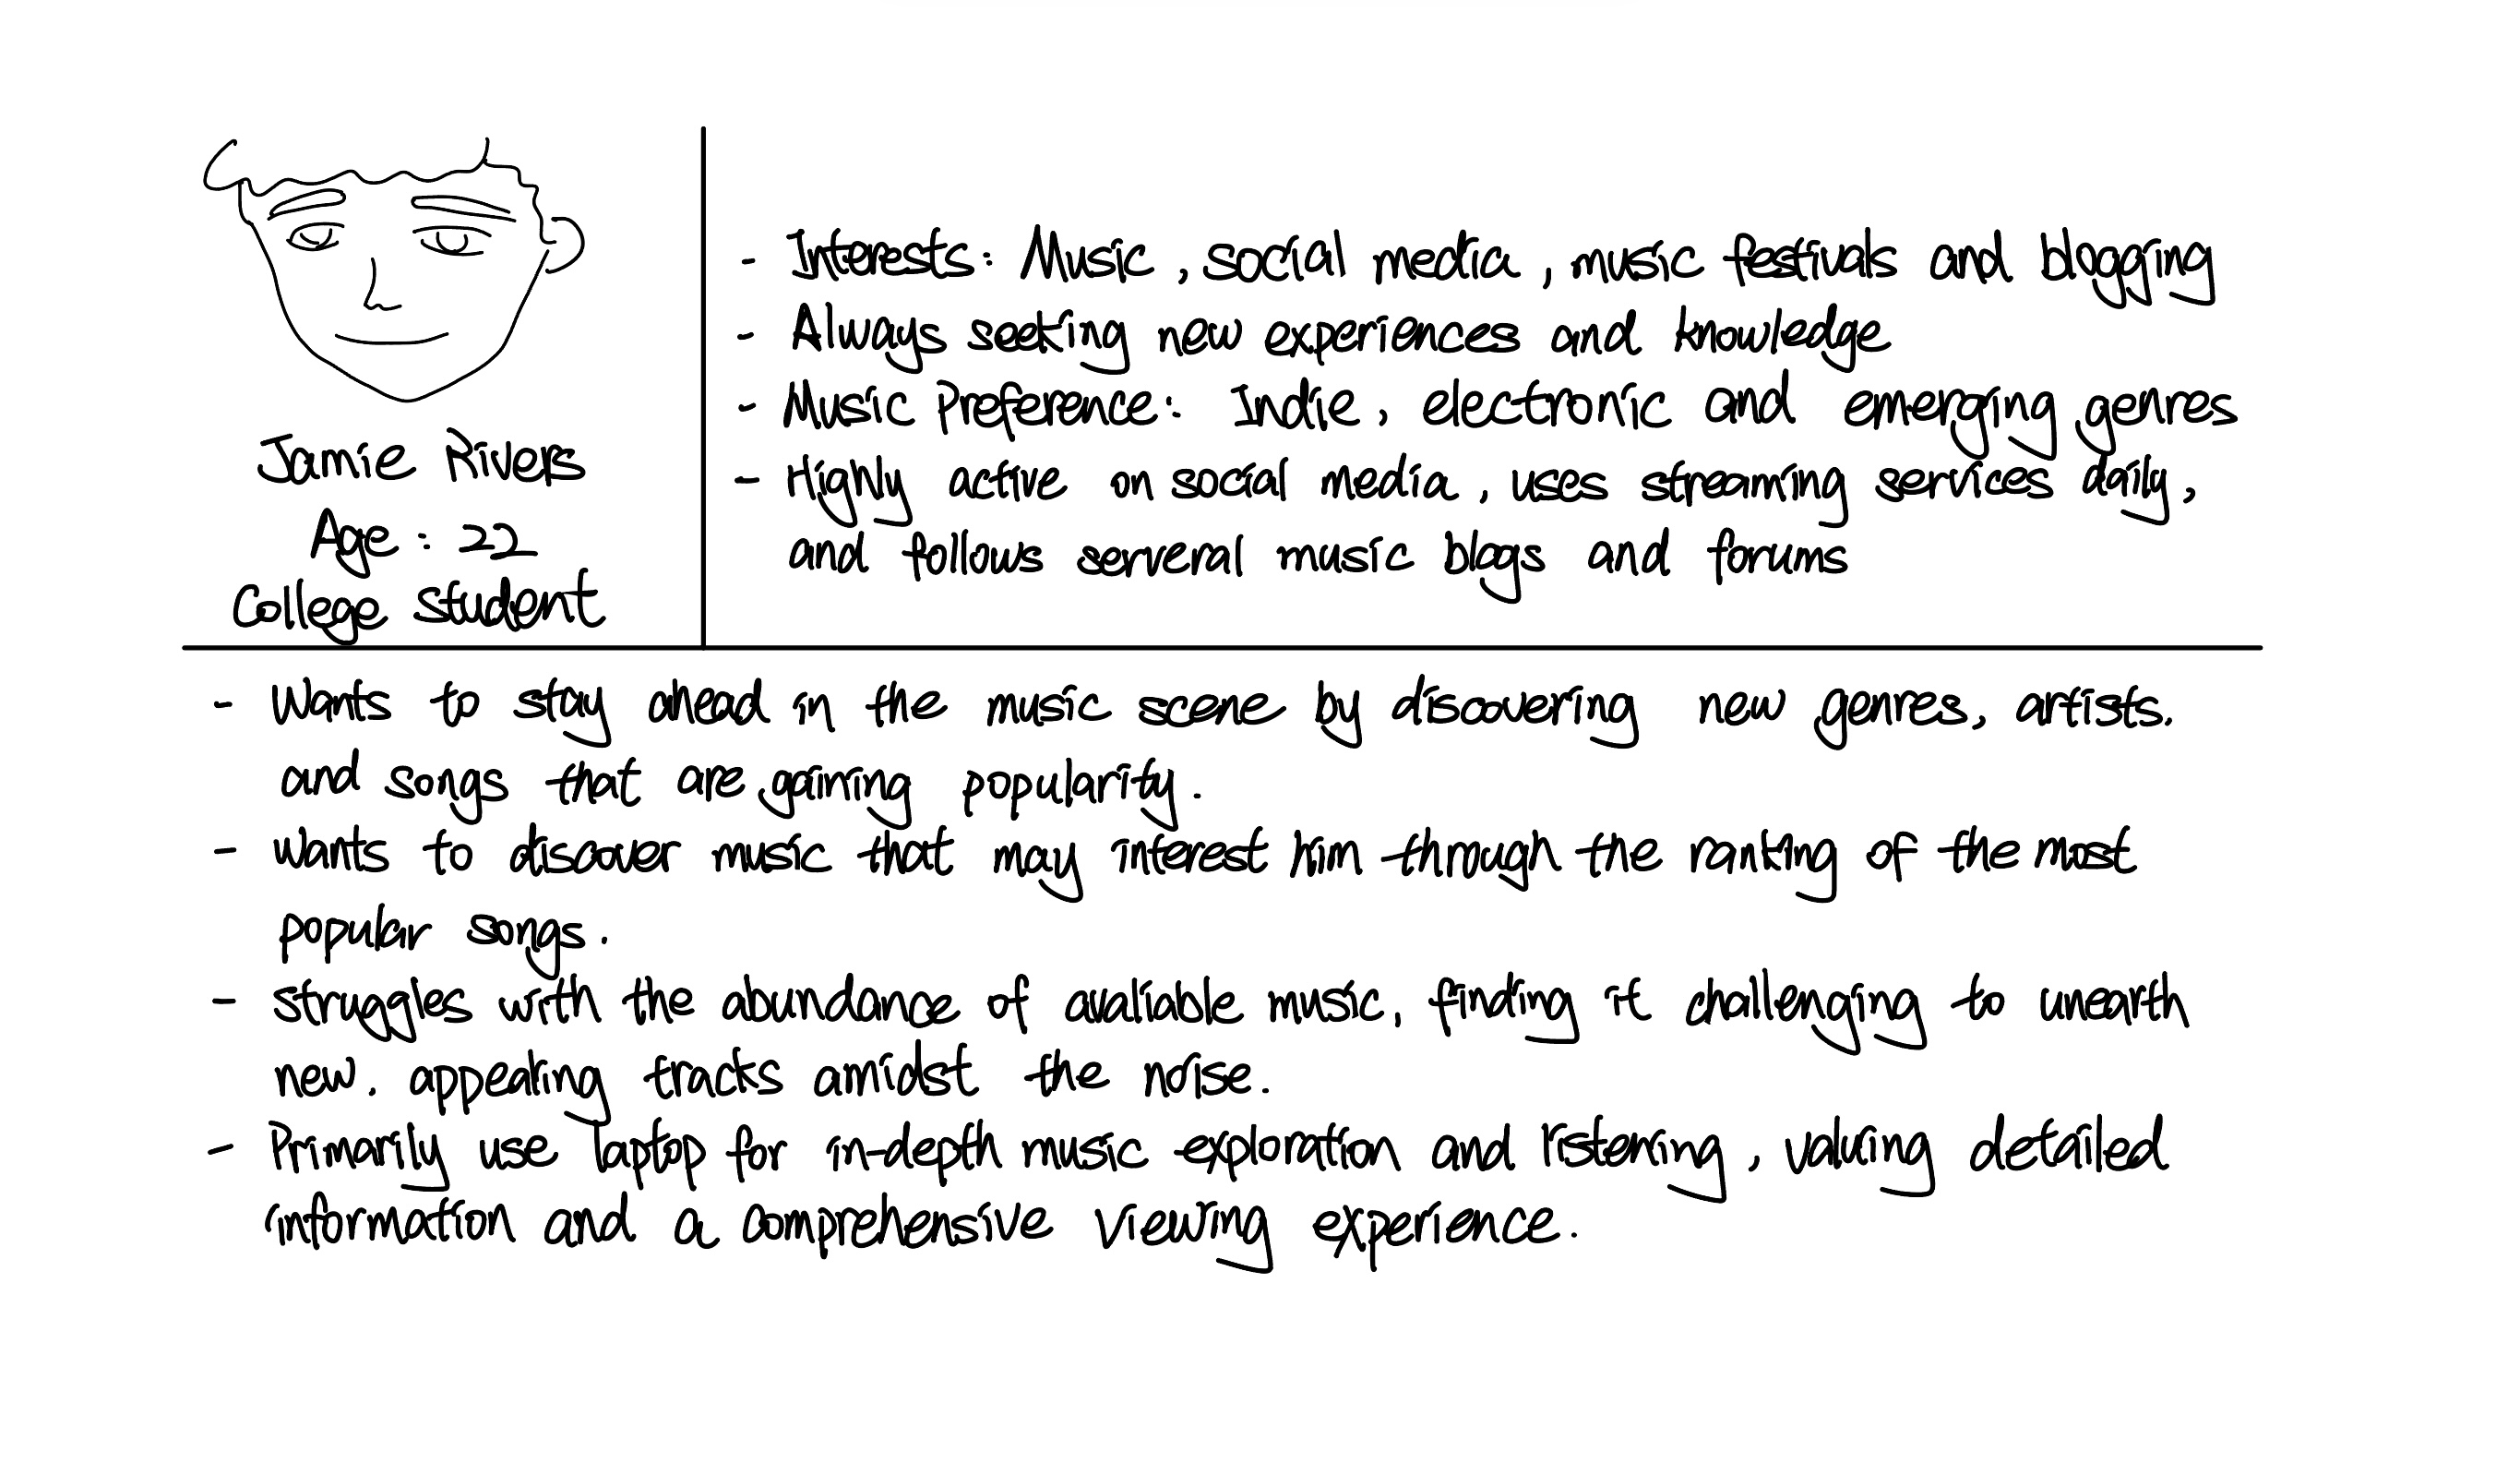 Jamie Rivers
Age : 22
College student
- Interests: Music, social media, music festivals and blogging
- Always seeking new experiences and knowledge
- Music Preference: Indie, electronic and emerging genres
- Highly active on social media, uses streaming services daily,
and follows serveral music blogs and forums
- Wants to stay ahead in the music scene by discovering new genres, artists,
and songs that are gaining popularity.
- Wants to discover music that may interest him through the ranking of the most
popular songs.
- Struggles with the abundance of avaliable music, finding it challenging to unearth
new, appealing tracks amidst the noise.
- Primarily use laptop for in-depth music exploration and listening, valuing detailed
information and a comprehensive viewing experience.